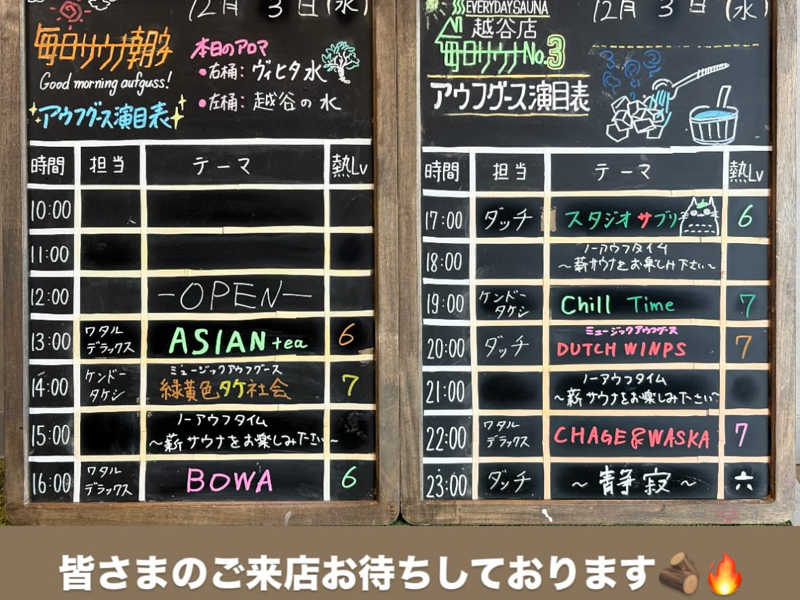 12月 3日(水)
毎日サウナ朝
Good morning aufguss!
アウフグース演目表
本日のアロマ
•右桶:ヴィヒタ水
•左桶:越谷の水
時間 担当 テーマ 熱Lv
10:00
11:00
12:00 -OPEN-
13:00 ワタルデラックス ASIAN tea 6
14:00 ケンドータケシ ミュージックアウフグース 緑黄色タケ社会 7
15:00 ノーアウフタイム ~薪サウナをお楽しみ下さい~
16:00 ワタルデラックス BOWA 6
12月 3日(水)
EVERYDAY SAUNA
越谷店
毎日サウナ No.3
アウフグース演目表
時間 担当 テーマ 熱Lv
17:00 ダッチ スタジオサプリ 6
18:00 ノーアウフタイム ~薪サウナをお楽しみ下さい~
19:00 ケンドータケシ Chill Time 7
20:00 ダッチ ミュージックアウフグース DUTCH WINPS 7
21:00 ノーアウフタイム ~薪サウナをお楽しみ下さい~
22:00 ワタルデラックス CHAGE&WASKA 7
23:00 ダッチ ~静寂~ 六
皆さまのご来店お待ちしております🪵🔥